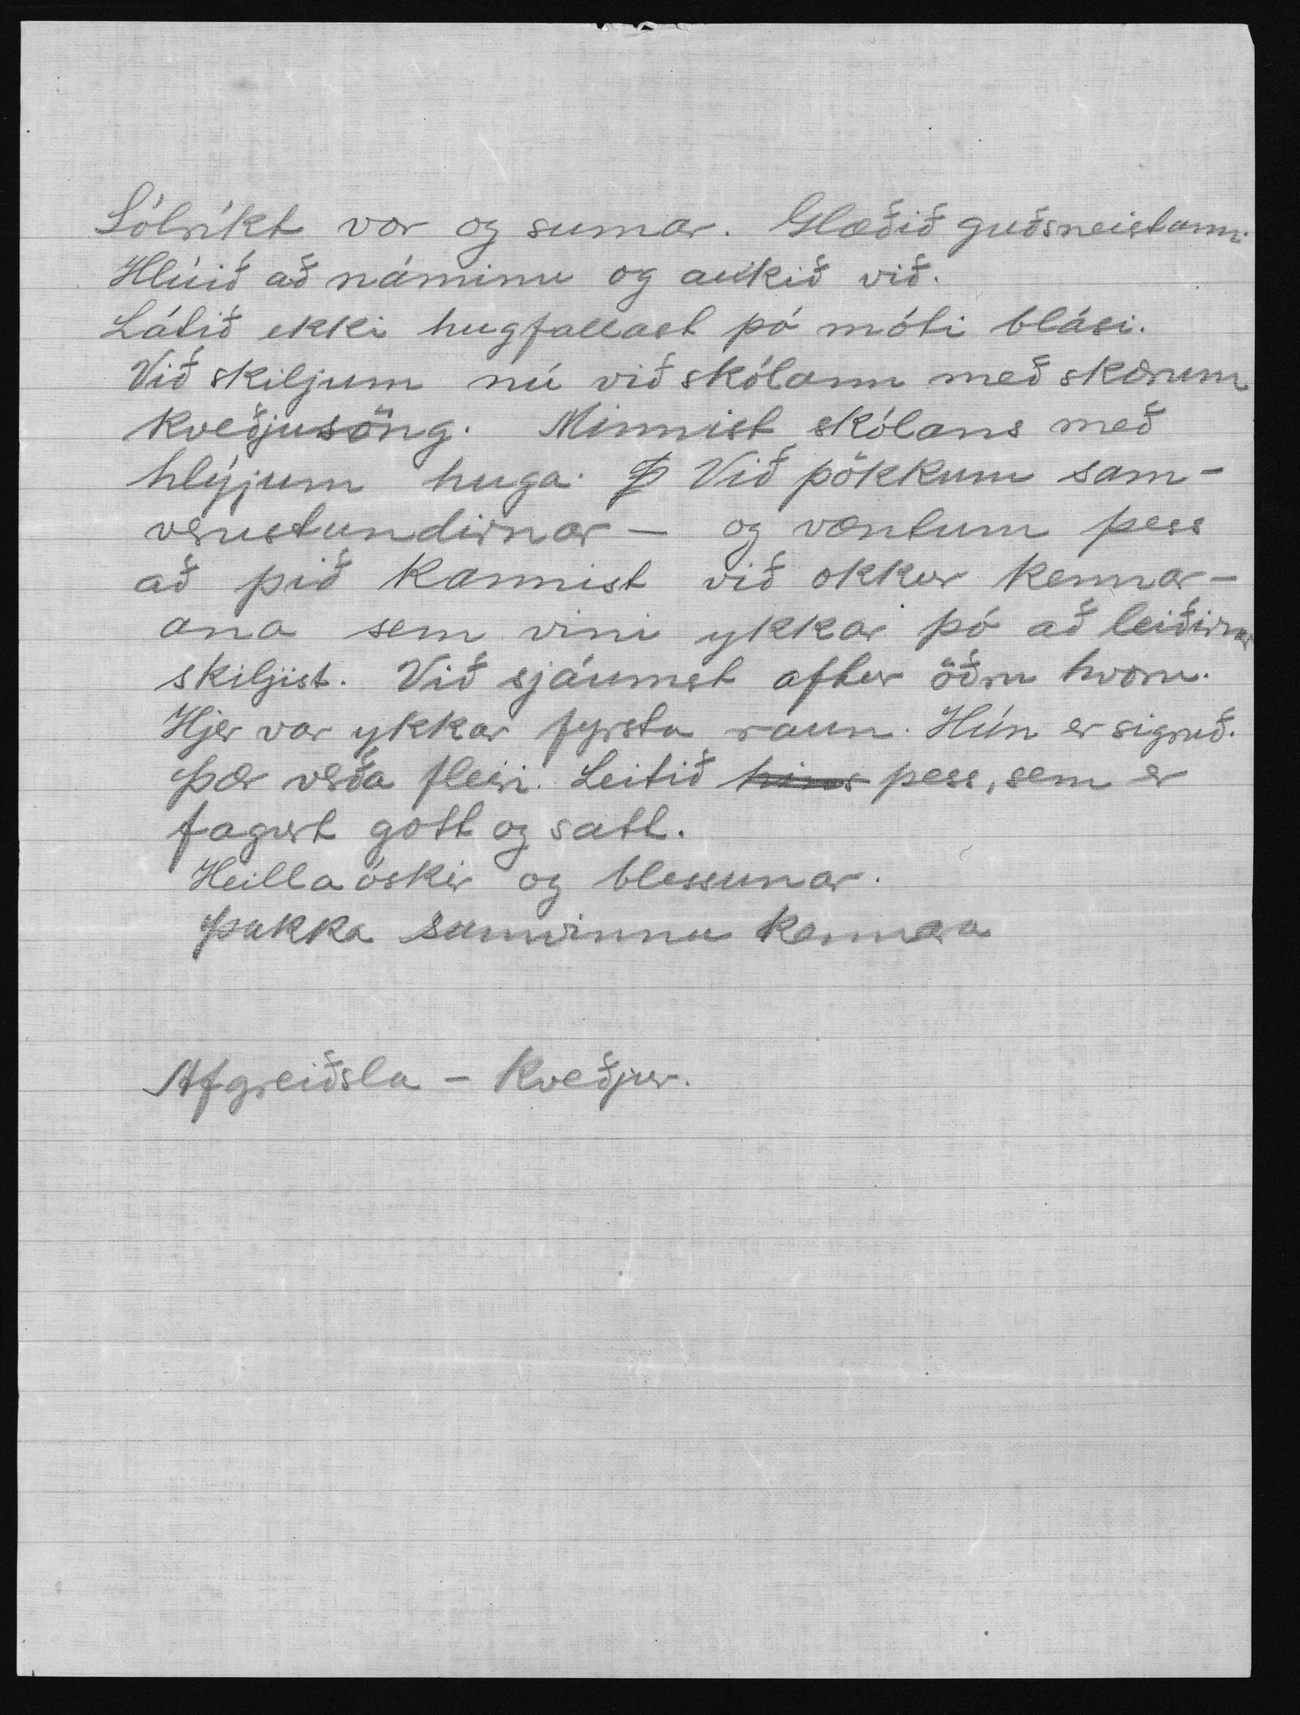 Sólríkt vor og sumar. Glæðið guðsneistann.
Hlúið að náminu og aukið við.
Látið ekki hugfallast þó móti blási.
Við skiljum nú við skólann með skærum
kveðjusöng. Minnist skólans með
hlýjum huga. Þ Við þökkum sam-
verustundirnar — og væntum þess
að þið kannist við okkur kennar-
ana sem vini ykkar þó að leiðirnar
skiljist. Við sjáumst aftur öðru hvoru.
Hjer var ykkar fyrsta raun. Hún er sigruð.
Þær verða fleiri. Leitið hins þess, sem er
fagurt gott og satt.
Heillaóskir og blessunar.
Þakka samvinnu kennara
Afgreiðsla - Kveðjur.